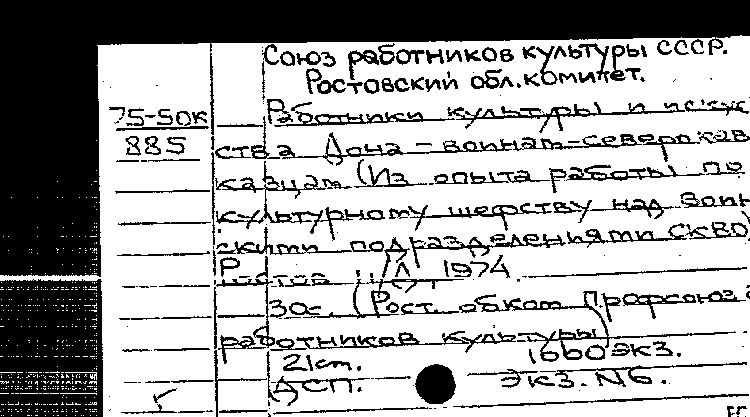 Союз работников культуры СССР.
Ростовский обл.комитет.
75-50к
885
Работники культуры и искус
ства Дона – воинам-северокав
казцам (Из опыта работы по
культурному шефству над воин
скими подразделениями СКВО)
Ростов н/Д, 1974.
30с. (Рост. обком Профсоюза
работников культуры)
21см. 1660 экз.
ДСП. Экз. №6.